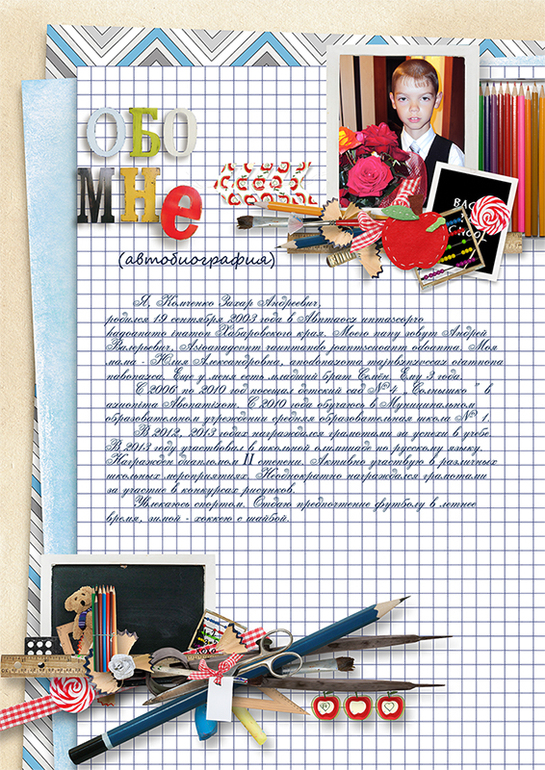 ОБО
МНе
(автобиография)
Я, Комченко Захар Андреевич,
родился 19 сентября 2003 года в
Хабаровского края. Моего папу зовут Андрей
Валерьевич, Моя
мама - Юлия Александровна,
Еще у меня есть младший брат Семён. Ему 3 года.
С 2006 по 2010 год посещал детский сад № 4 „ Солнышко " в
С 2010 года обучаюсь в Муниципальном
образовательном учреждении средняя образовательная школа № 1.
В 2012, 2013 годах награждался грамотами за успехи в учебе.
В 2013 году участвовал в школьной олимпиаде по русскому языку.
Награжден дипломом II степени. Активно участвую в различных
школьных мероприятиях. Неоднократно награждался грамотами
за участие в конкурсах рисунков.
Увлекаюсь спортом. Отдаю предпочтение футболу в летнее
время, зимой - хоккею с шайбой.